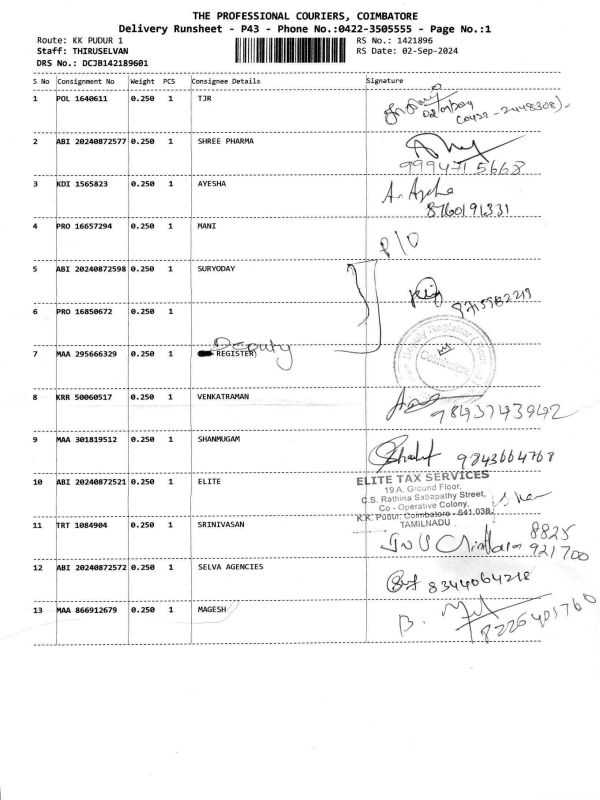 THE PROFESSIONAL COURIERS, COIMBATORE
Delivery Runsheet - P43 - Phone No.:0422-3505555 - Page No.:1
Route: KK PUDUR 1 RS No.: 1421896
Staff: THIRUSELVAN RS Date: 02-Sep-2024
DRS No.: DCJB142189601
S No Consignment No Weight PCS Consignee Details Signature
1 POL 1640611 0.250 1 TJR
2 ABI 20240872577 0.250 1 SHREE PHARMA
9994715668
3 KDI 1565823 0.250 1 AYESHA
8760191331
4 PRO 16657294 0.250 1 MANI
P/O
5 ABI 20240872598 0.250 1 SURYODAY
6 PRO 16850672 0.250 1
Deputy
7 MAA 295666329 0.250 1 REGISTER)
Deputy Registrar
Coimbatore
8 KRR 50060517 0.250 1 VENKATRAMAN
9843743942
9 MAA 301819512 0.250 1 SHANMUGAM
9843664768
10 ABI 20240872521 0.250 1 ELITE
ELITE TAX SERVICES
19 A, Ground Floor,
C.S. Rathina Sabapathy Street,
Co - Operative Colony,
K.K. Pudur, Coimbatore - 641 038.
TAMILNADU
11 TRT 1084904 0.250 1 SRINIVASAN
8825
921700
12 ABI 20240872572 0.250 1 SELVA AGENCIES
8344064218
13 MAA 866912679 0.250 1 MAGESH
B.
8226401760